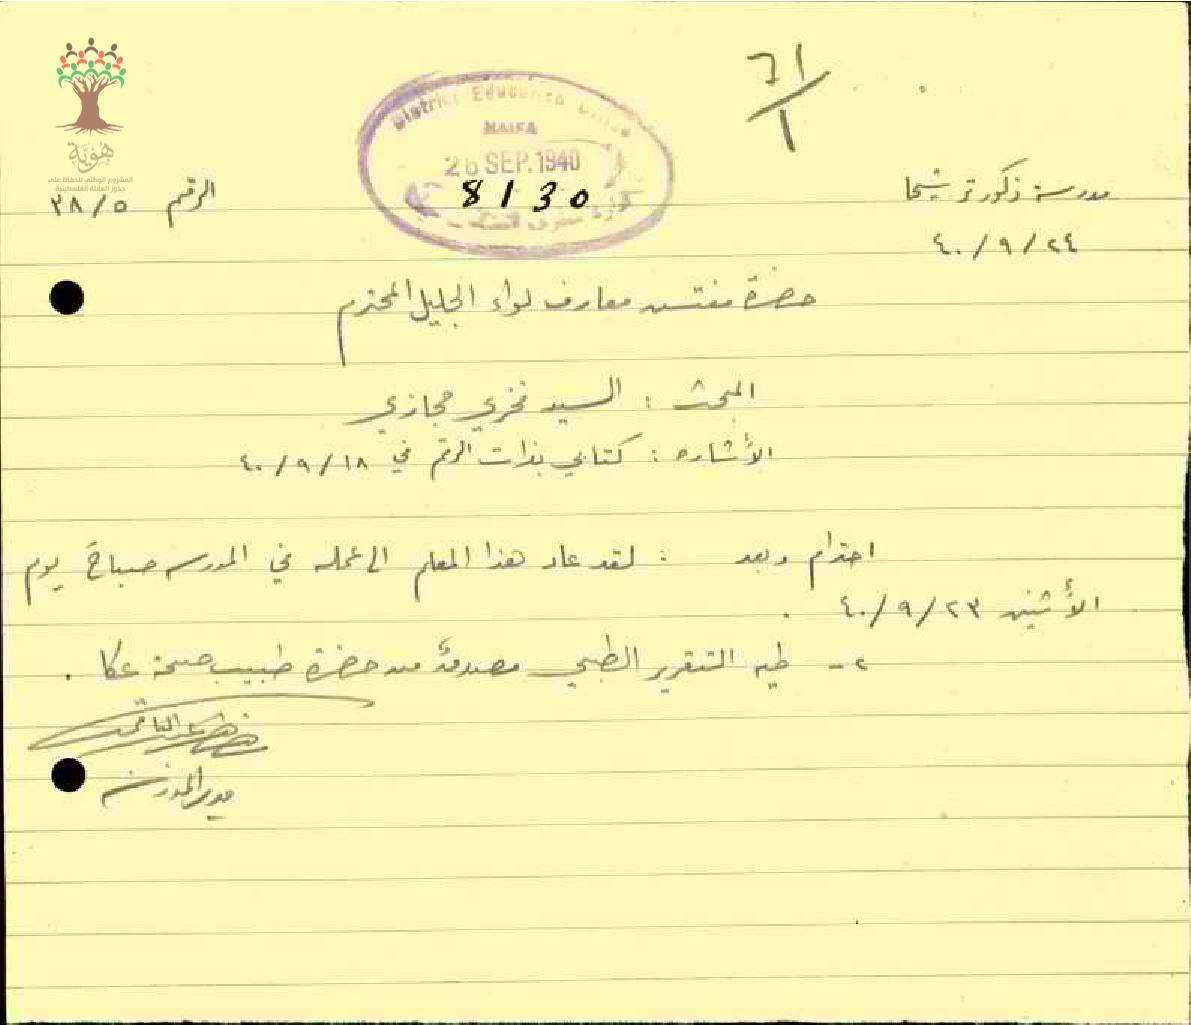 ٦١/١
هُوِيَّة
المشروع الوطني للحفاظ على
جذور العائلة الفلسطينية
District Education Office
HAIFA
26 SEP. 1940
8130
الرقم ٣٨/٥
مدرسة ذكور ترشيحا
٤٠/٩/٢٤
حضرة مفتش معارف لواء الجليل المحترم
المبحث : السيد فخري حجازي
الأشاره : كتابي بذات الرقم في ٤٠/٩/١٨
احترام وبعد : لقد عاد هذا المعلم الى عمله في المدرسه صباحَ يوم
الأثنين ٤٠/٩/٢٣ .
٢- طيه التقرير الطبي مصدقاً من حضرة طبيب صحة عكا .
مدير المدرسة